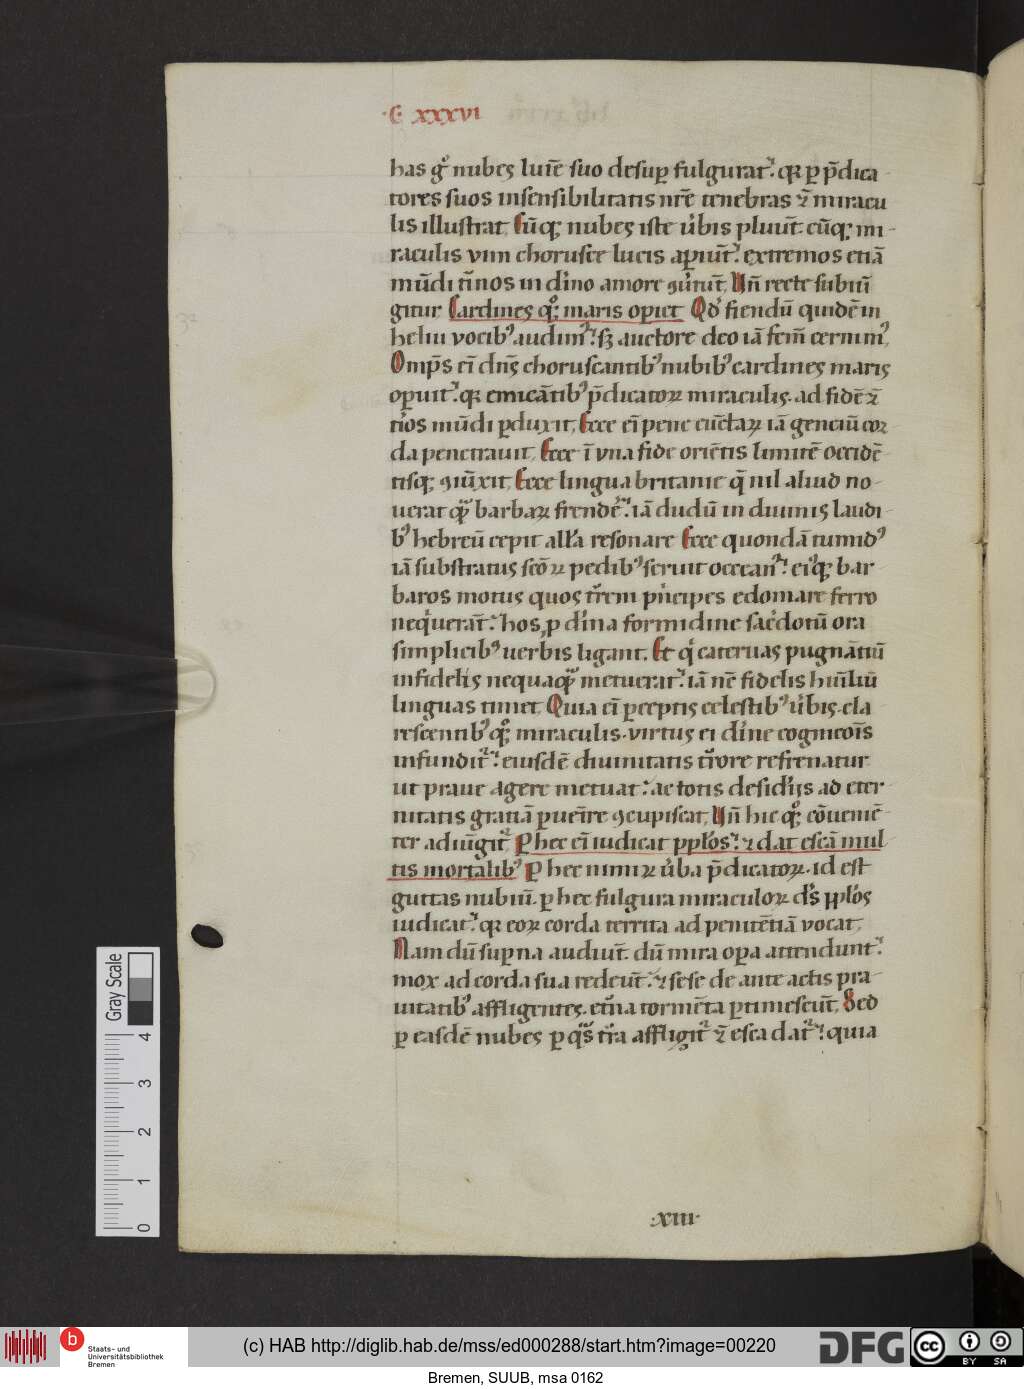 ·C· XXXVI
has gͦ nubes luīe suo desuꝑ fulgurat᷒. qꝛ ꝑ p̄dica-
tores suos insensibilitatis nr̄e tenebras ⁊̄ miracu
lis illustrat. Cūq; nubes iste u̓bis pluūt. cūq; mi-
raculis vim chorusce lucis aꝑiūt᷒. extremos etiā
mūdi t̓inos in diͥno amore ꝯu̓tūt. Vn̄ recte subiū
gitur Cardines qͦ; maris oꝑiet Qd̓ fiendū quidē in
heliu vocib᷒ audim᷒. sꝫ auctore deo iā fcm̄ cernim᷒.
Omp̄s ei̅ dn̄s choruscantib᷒ nubib᷒ cardines maris
oꝑuit᷒. qꝛ emicātib᷒ p̄dicatoꝝ miraculis. ad fidē ⁊̄
t̓ios mūdi ꝑduxit. Ecce ei̅ pene cūctaꝝ iā genciū cor
da penetrauit. Ecce ī vna fide oriētis limitē occidē-
tisq; ꝯiūxit. Ecce lingua britanie q̄ nil aliud no-
uerat qᷓꝫ barbaꝝ frendē᷒. iā dudū in diuinis laudi-
b᷒ hebreū cepit all̓a resonare Ecce quondā tumid᷒
iā substratus scōꝝ pedib᷒ seruit occean᷒. ei᷒q; bar-
baros motus quos t̓rem pͥncipes edomare ferro
neqͥuerāt᷒. hos ꝓ diͥna formidine sac̓dotū ora
simplicib᷒ uerbis ligant. Et qͥ cateruas pugnātiū
infidelis nequaqᷓꝫ metuerat᷒. iā nc̄ fidelis hūiliū
linguas timet. Quia ei̅ ꝑceptis celestib᷒ u̓bis. cla
rescentib᷒ qͦ; miraculis. virtus ei diͥne cognicoīs
infundit᷒. eiusdē diuinitatis t̓rore refrenatur
ut praue agere metuat: ac totis desid̓ijs ad eter-
nitatis gratiā ꝑueīre ꝯcupiscat. Vn̄ hic qͦ; cōueniē-
ter adiūgit᷒ Per hec ei̅ iudicat pplo̓s᷒. ⁊ dat escā mul
tis mortalib᷒ Per hec nimiꝝ u̓ba p̄dicatoꝝ. id est
guttas nubiū. ꝑ hec fulgura miraculoꝝ ds̄ pplo̓s
iudicat᷒. qꝛ eoꝝ corda territa ad penitētiā vocat.
Nam dū suꝑna audiūt. dū mira oꝑa attendunt᷒.
mox ad corda sua redeūt᷒. ⁊ sese de ante actis pra-
uitatib᷒ affligentes. et̓na tormēta ꝑtimescūt. Sed
ꝑ easdē nubes ꝑ qᷓs t̓ra affligit᷒ ⁊̄ esca dat᷒. quia
·XIII·
Gray Scale
0 1 2 3 4
b Staats- und Universitätsbibliothek Bremen
(c) HAB http://diglib.hab.de/mss/ed000288/start.htm?image=00220
DFG
cc BY SA
Bremen, SUUB, msa 0162